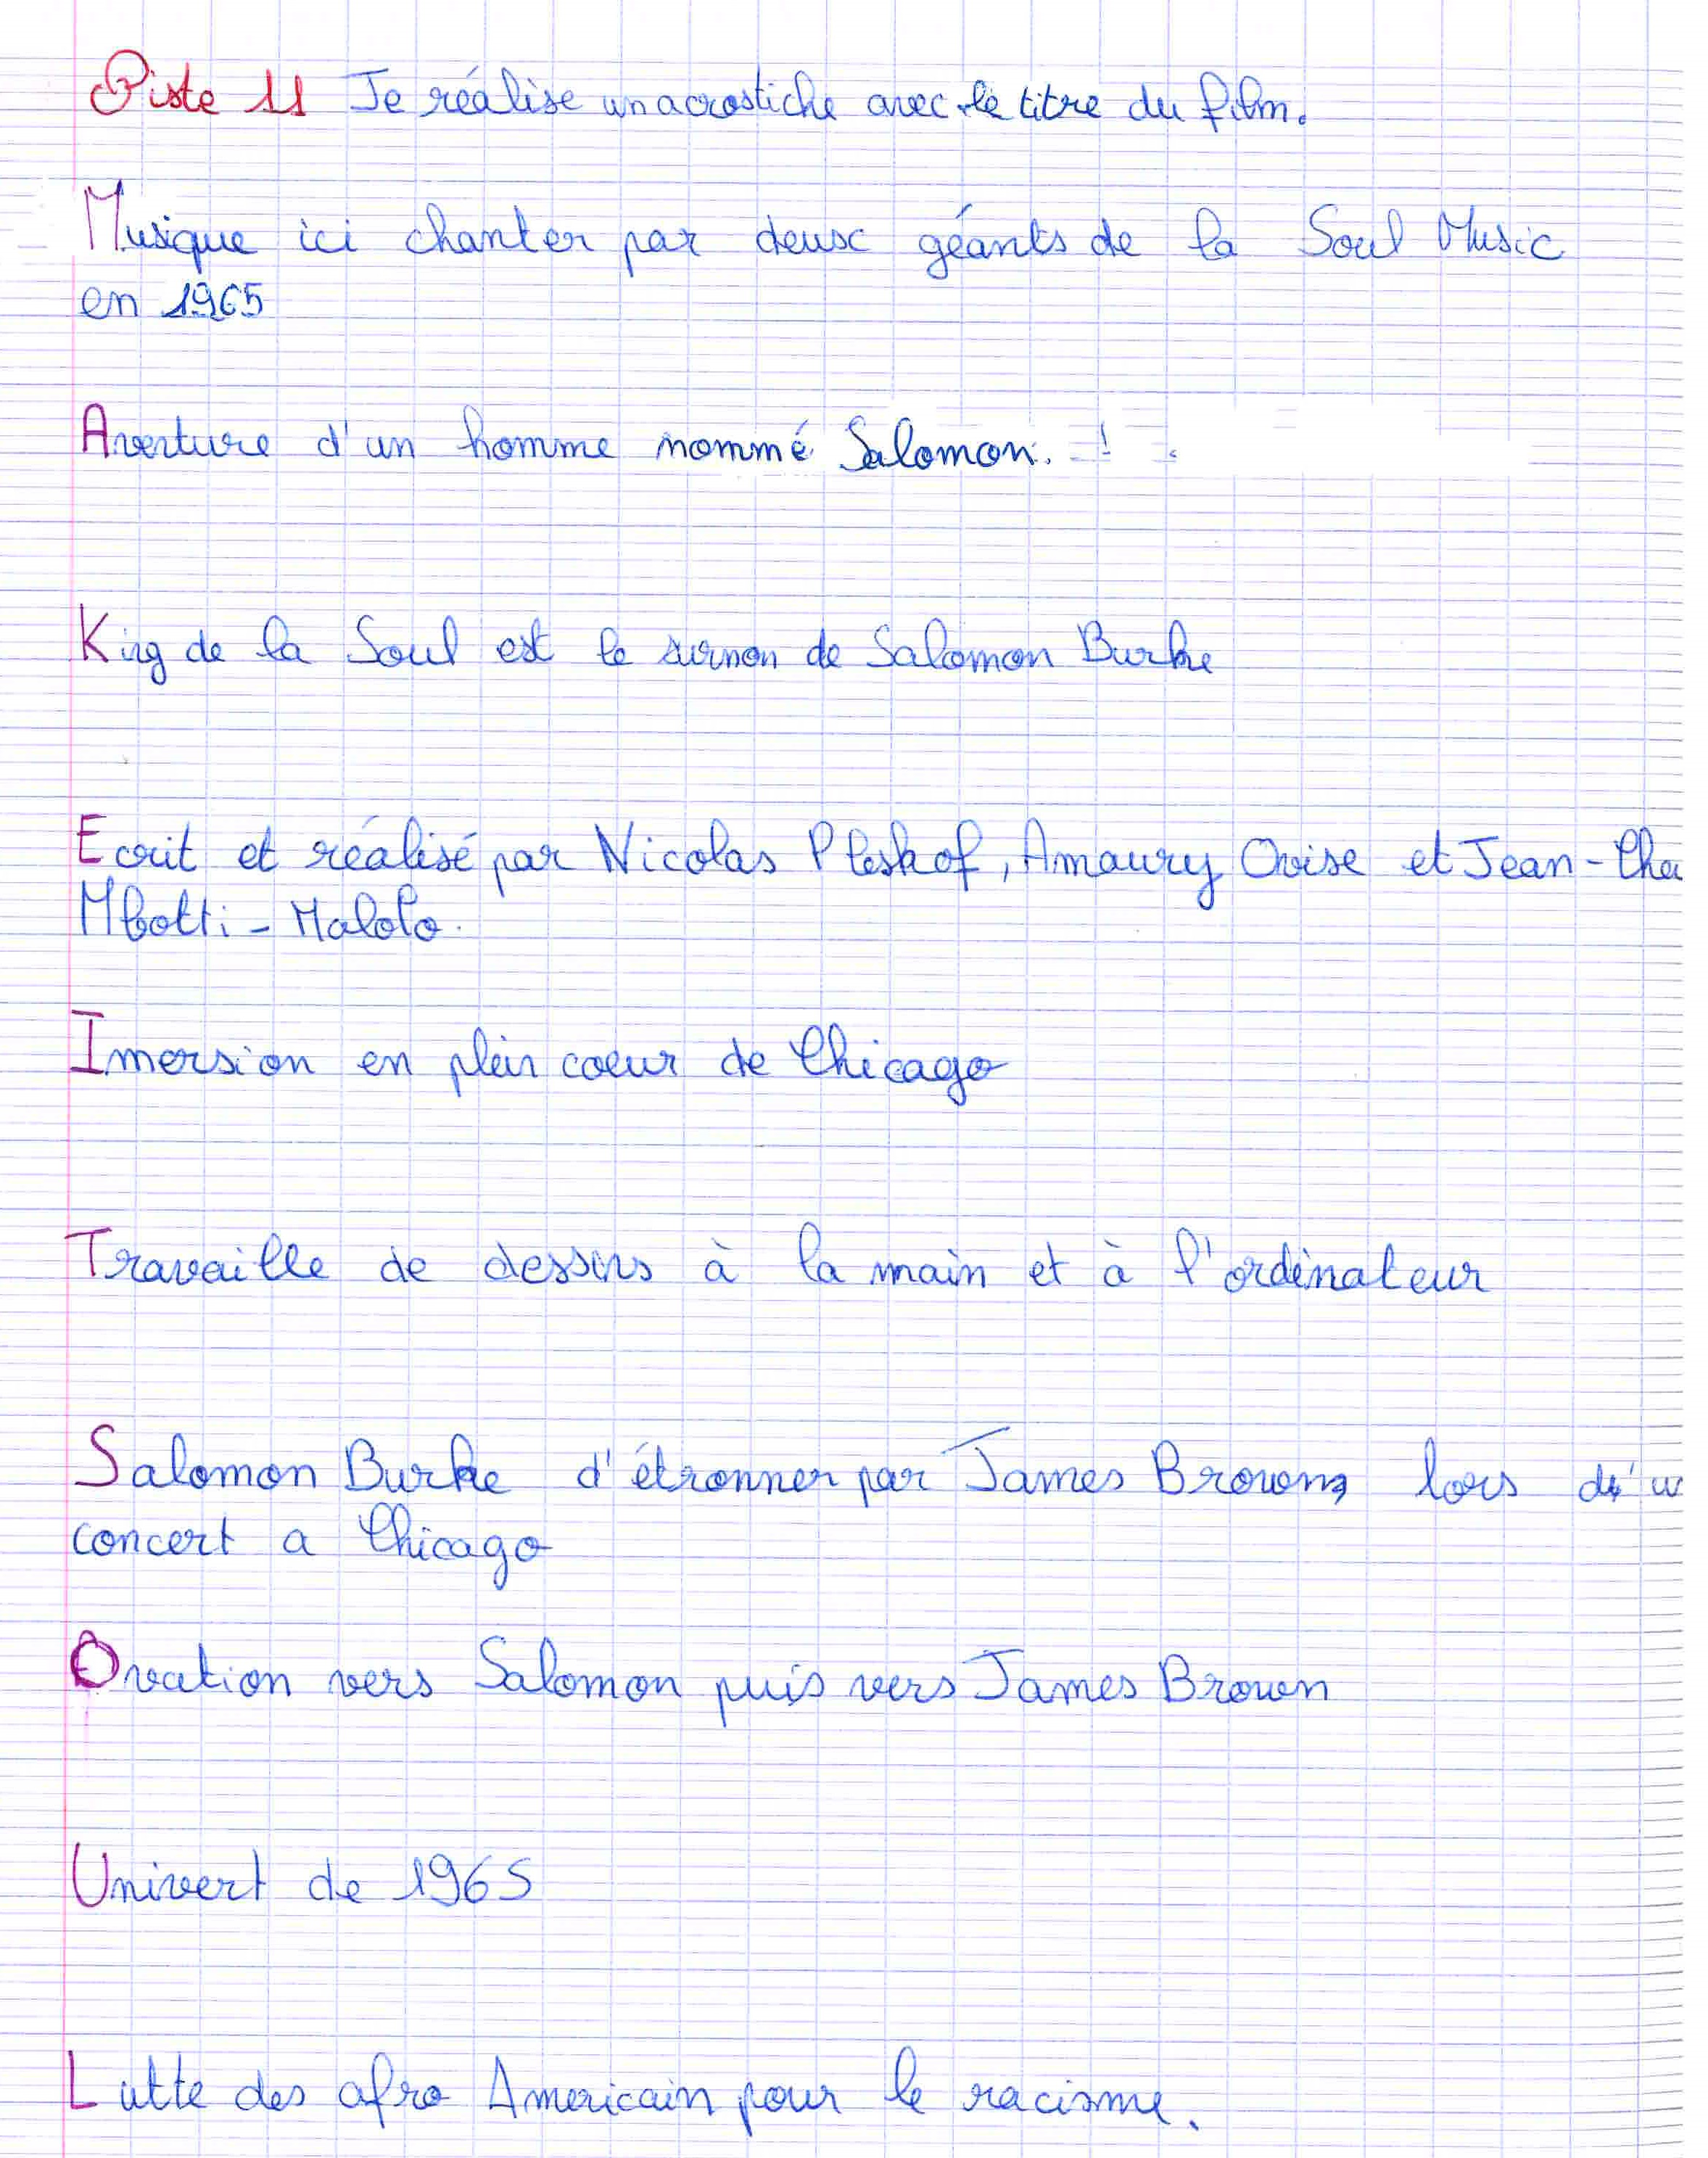 Piste 11 Je réalise un acrostiche avec le titre du film.
Musique ici chanter par deux géants de la Soul Music
en 1965
Aventure d'un homme nommé Salomon.
King de la Soul est le surnon de Salomon Burke
Ecrit et réalisé par Nicolas Pleskof, Amaury Ovise et Jean-Cha
Mbotti-Malolo.
Imersion en plein coeur de Chicago
Travaille de dessins à la main et à l'ordinateur
Salomon Burke d'étronner par James Brown, lors d'u
concert a Chicago
Ovation vers Salomon puis vers James Brown
Univert de 1965
Lutte des afro Americain pour le racisme.